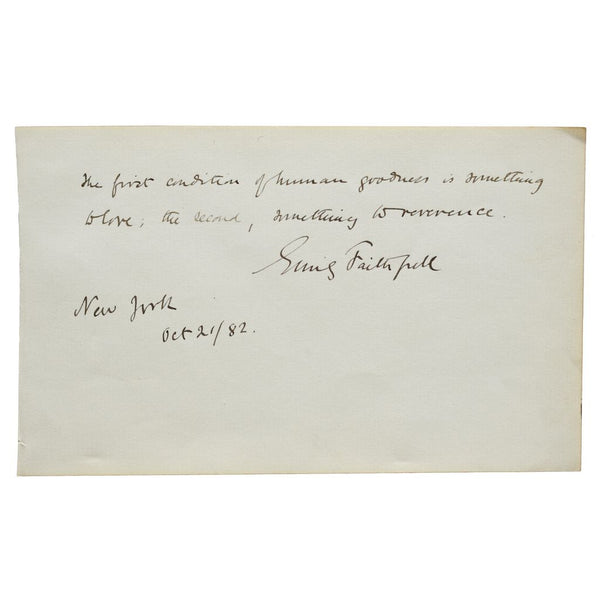 The first condition of human goodness is something
to love; the second, something to reverence.
Emily Faithfull
New York
Oct 21/82.